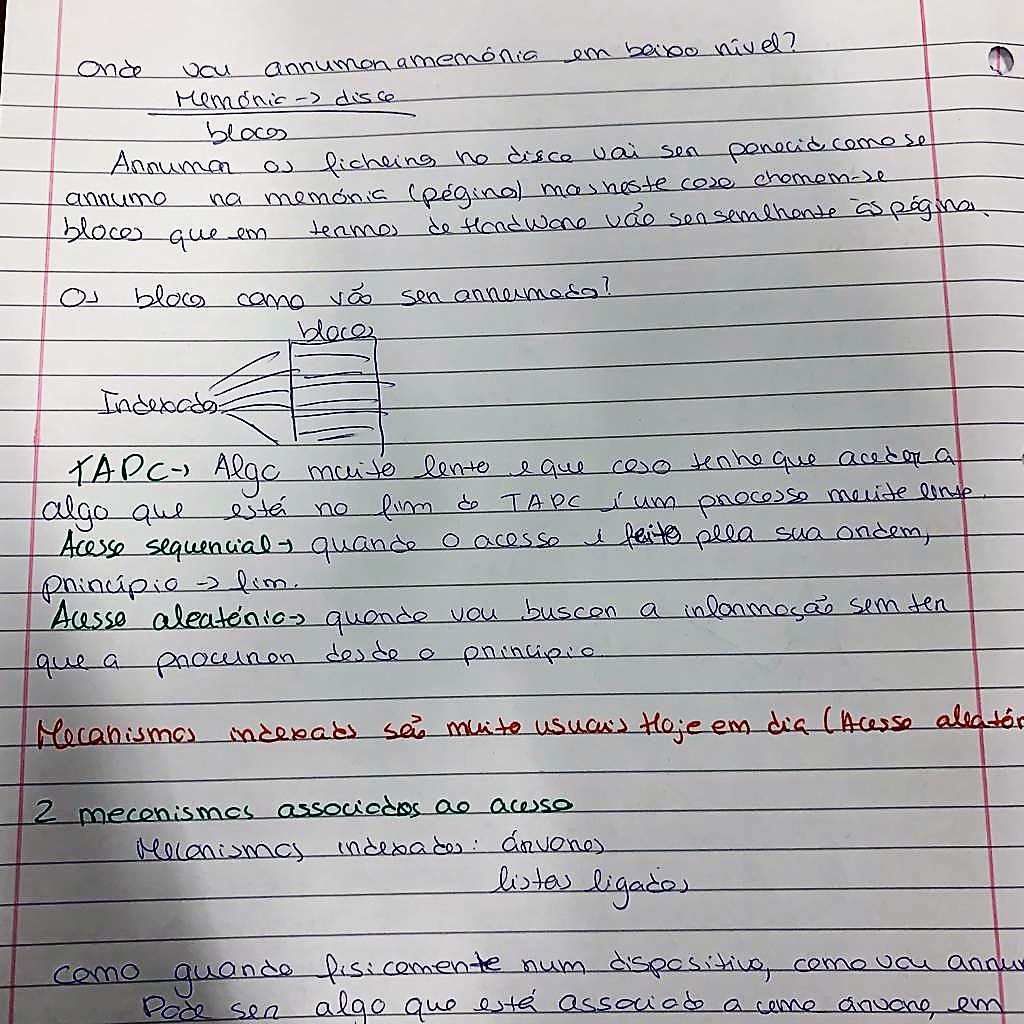 Onde vou arrumar a memória em baixo nível?
Memória -> disco
blocos
Arrumar os ficheiros no disco vai ser parecido como se
arrumo na memória (página) mas neste caso chamam-se
blocos que em termos de Hardware vão ser semelhante às página.
Os bloco como vão ser arrumado?
blocos
Indexado
TAPC -> Algo muito lento e que caso tenha que aceder a
algo que está no fim do TAPC é um processo muito lento.
Acesso sequencial -> quando o acesso é feito pela sua ordem,
princípio -> fim.
Acesso aleatório -> quando vou buscar a informação sem ter
que a procurar desde o princípio
Mecanismos indexados são muito usuais Hoje em dia (Acesso aleatór
2 mecanismos associados ao acesso
Mecanismos indexados: árvores
listas ligados
como guardo fisicamente num dispositivo, como vou arru
Pode ser algo que está associado a como árvore, em